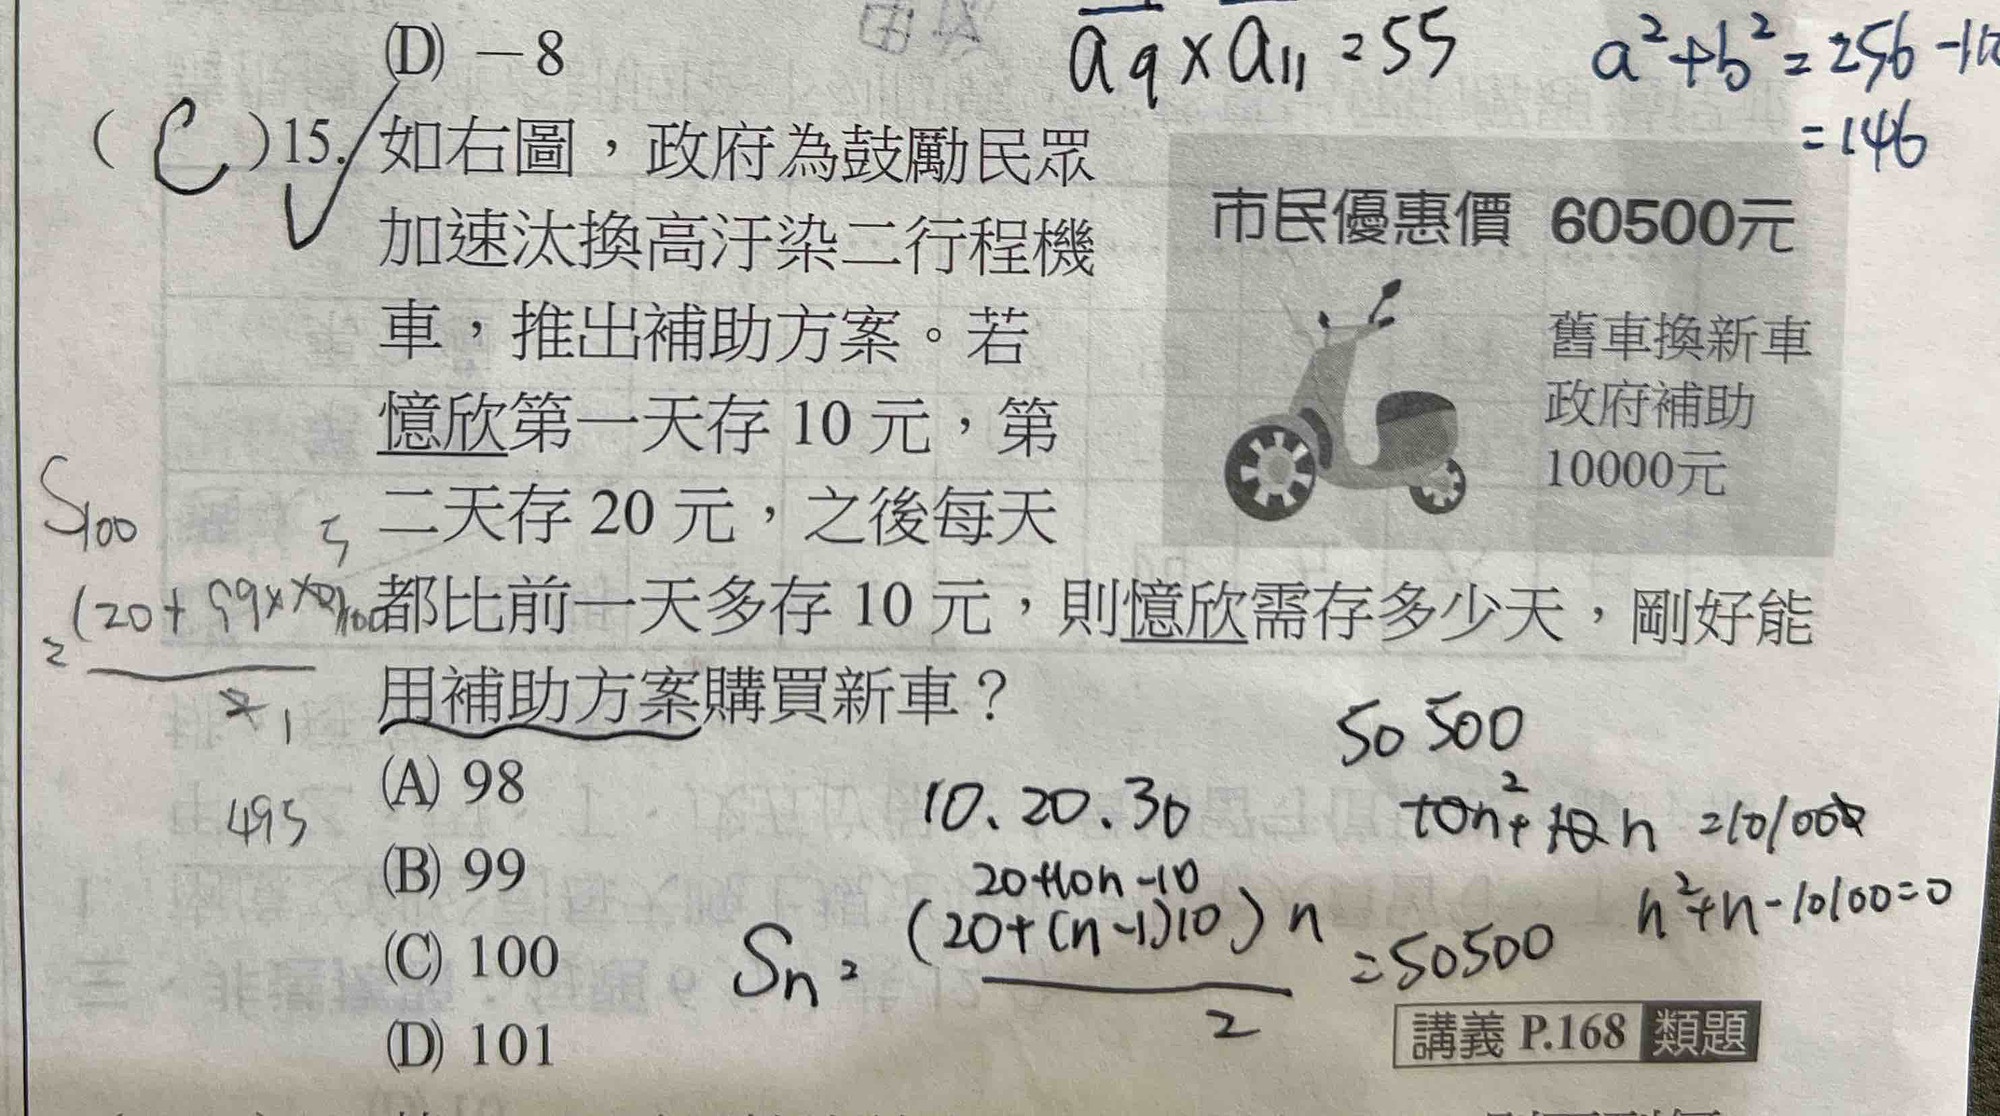 (D) －8
a9 × a11 = 55
a²+b² = 256 - 110
= 146
( C ) 15. 如右圖，政府為鼓勵民眾
加速汰換高汙染二行程機
車，推出補助方案。若
憶欣第一天存 10 元，第
二天存 20 元，之後每天
都比前一天多存 10 元，則憶欣需存多少天，剛好能
用補助方案購買新車？
市民優惠價 60500元
舊車換新車
政府補助
10000元
(A) 98
(B) 99
(C) 100
(D) 101
S100
495
50500
10、20、30
10n²+10n = 101000
n²+n-10100=0
20+10n-10
Sn = (20+(n-1)10)n
2
=50500
講義 P.168 類題